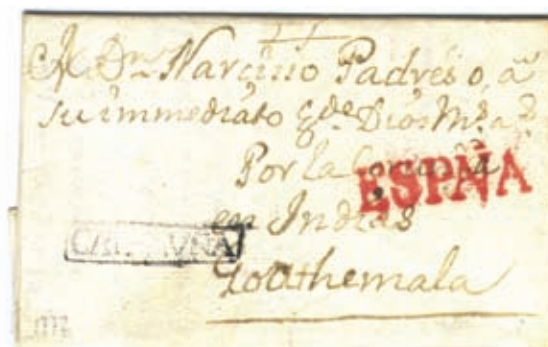 A Dn Narcisso Padres o, a
su immediato q de Dios Ms as
Por la Coruña
ESPÑA
en Indias
CATALUÑA
Goathemala